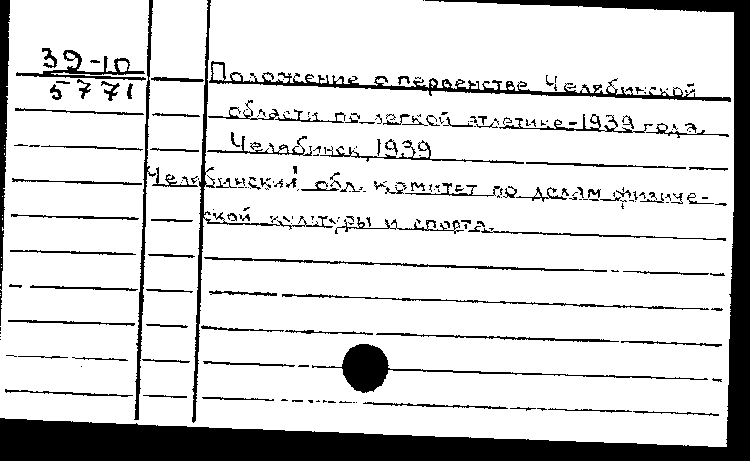 39-10
5771
Положение о первенстве Челябинской
области по легкой атлетике-1939 года.
Челябинск, 1939
Челябинский обл. комитет по делам физиче-
ской культуры и спорта.